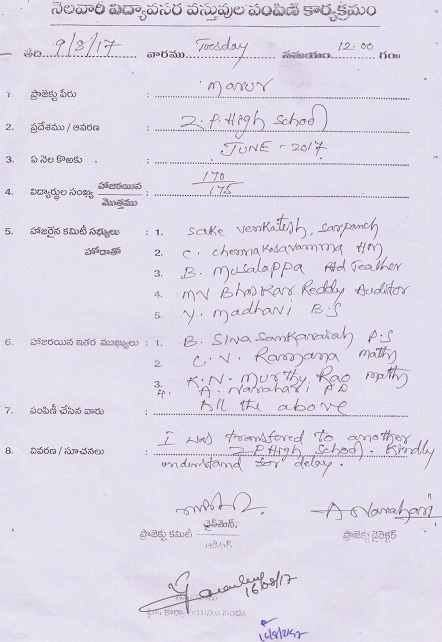 నెలవారీ విద్యావసర వస్తువుల పంపిణీ కార్యక్రమం
తేది 9/8/17 వారము Tuesday సమయం 12.00 గం॥
1. ప్రాజెక్టు పేరు : marur
2. ప్రదేశము / ఆవరణ : Z.P. High School
3. ఏ నెల కొఱకు : JUNE - 2017
4. విద్యార్థుల సంఖ్య హాజరయిన / మొత్తము : 170 / 175
5. హాజరైన కమిటీ సభ్యులు : 1. sake venkatesh, sarpanch
హోదాతో 2. C. chennakesavamma HM
3. B. Musalappa Teather
4. MV Bhaskar Reddy Auditor
5. Y. madhavi B.S
6. హాజరయిన ఇతర ముఖ్యులు : 1. B. Siva Sankaraiah P.S
2. C. V. Ramana maths
3. K.N. Murthy Rao maths
4. A. Narahari PD
7. పంపిణీ చేసిన వారు : All the above
8. వివరణ / సూచనలు : I was transfered to another
Z.P. High School. Kindly
understand for delay.
A Narahari
ఛైర్మెన్
ప్రాజెక్టు కమిటీ ప్రాజెక్టు డైరెక్టర్
ఆడిటర్
16/08/17